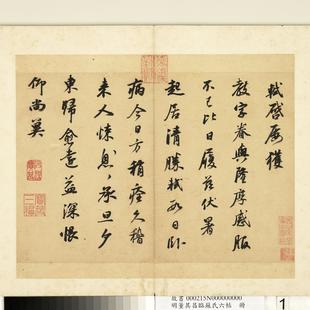 軾啓屢獲
教字眷與隆厚感服
不已比日履茲伏暑
起居清勝軾數日卧
病今日方稍痊久稽
來人悚息承旦夕
東歸愈遠益深悵
仰尚冀
故書 000215N000000000
明董其昌臨蘇氏六帖 冊
1